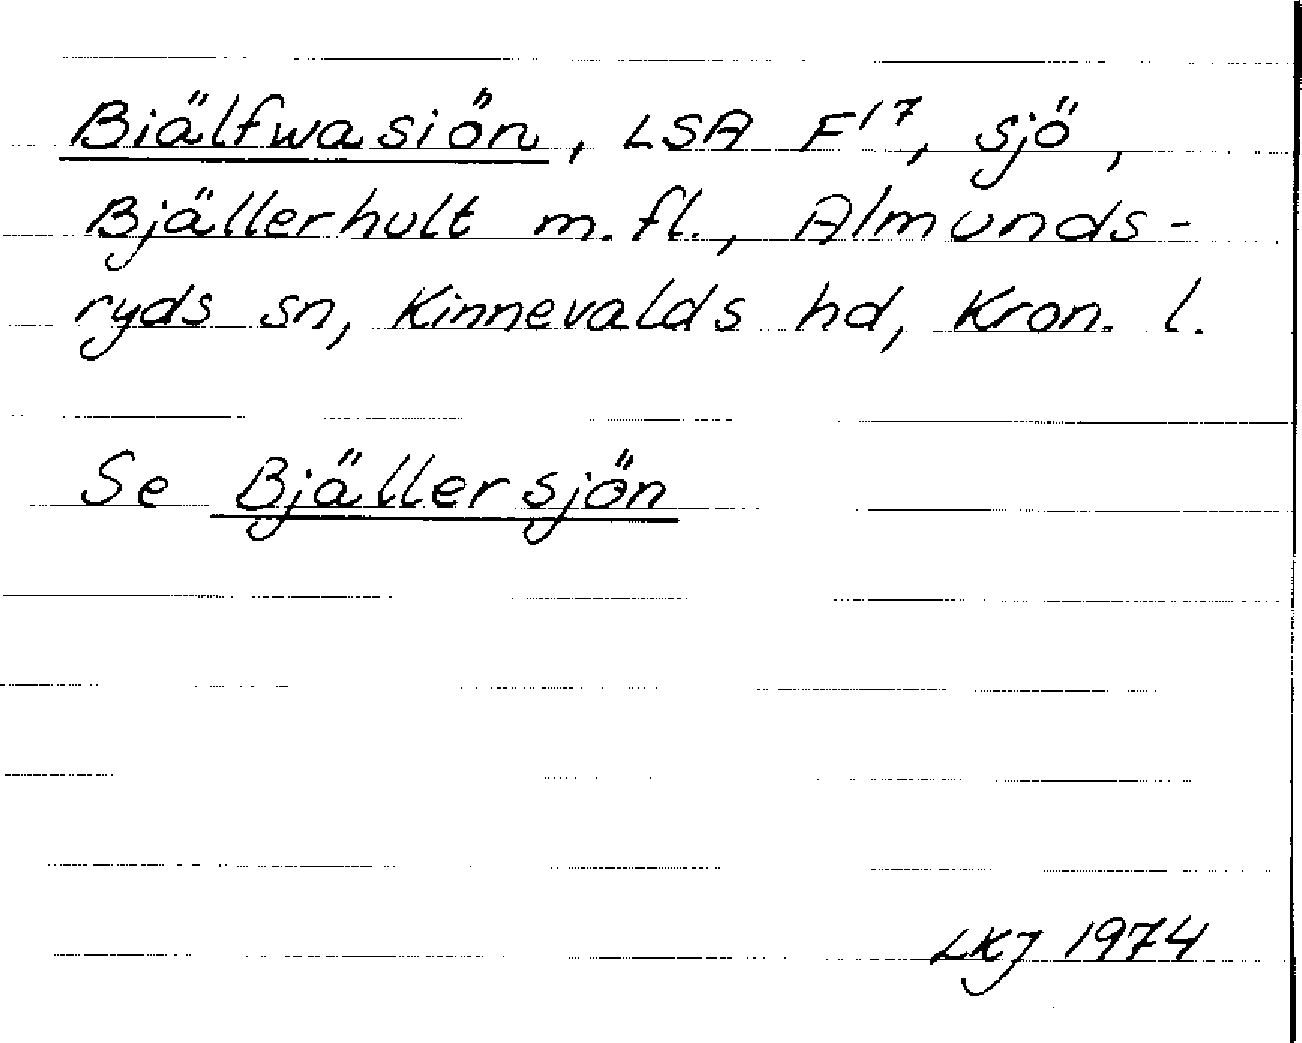 Biälfwasiön, LSA F¹⁷, sjö,
Bjällerhult m.fl., Almunds-
ryds sn, Kinnevalds hd, Kron. l.
Se Bjällersjön
LKJ 1974